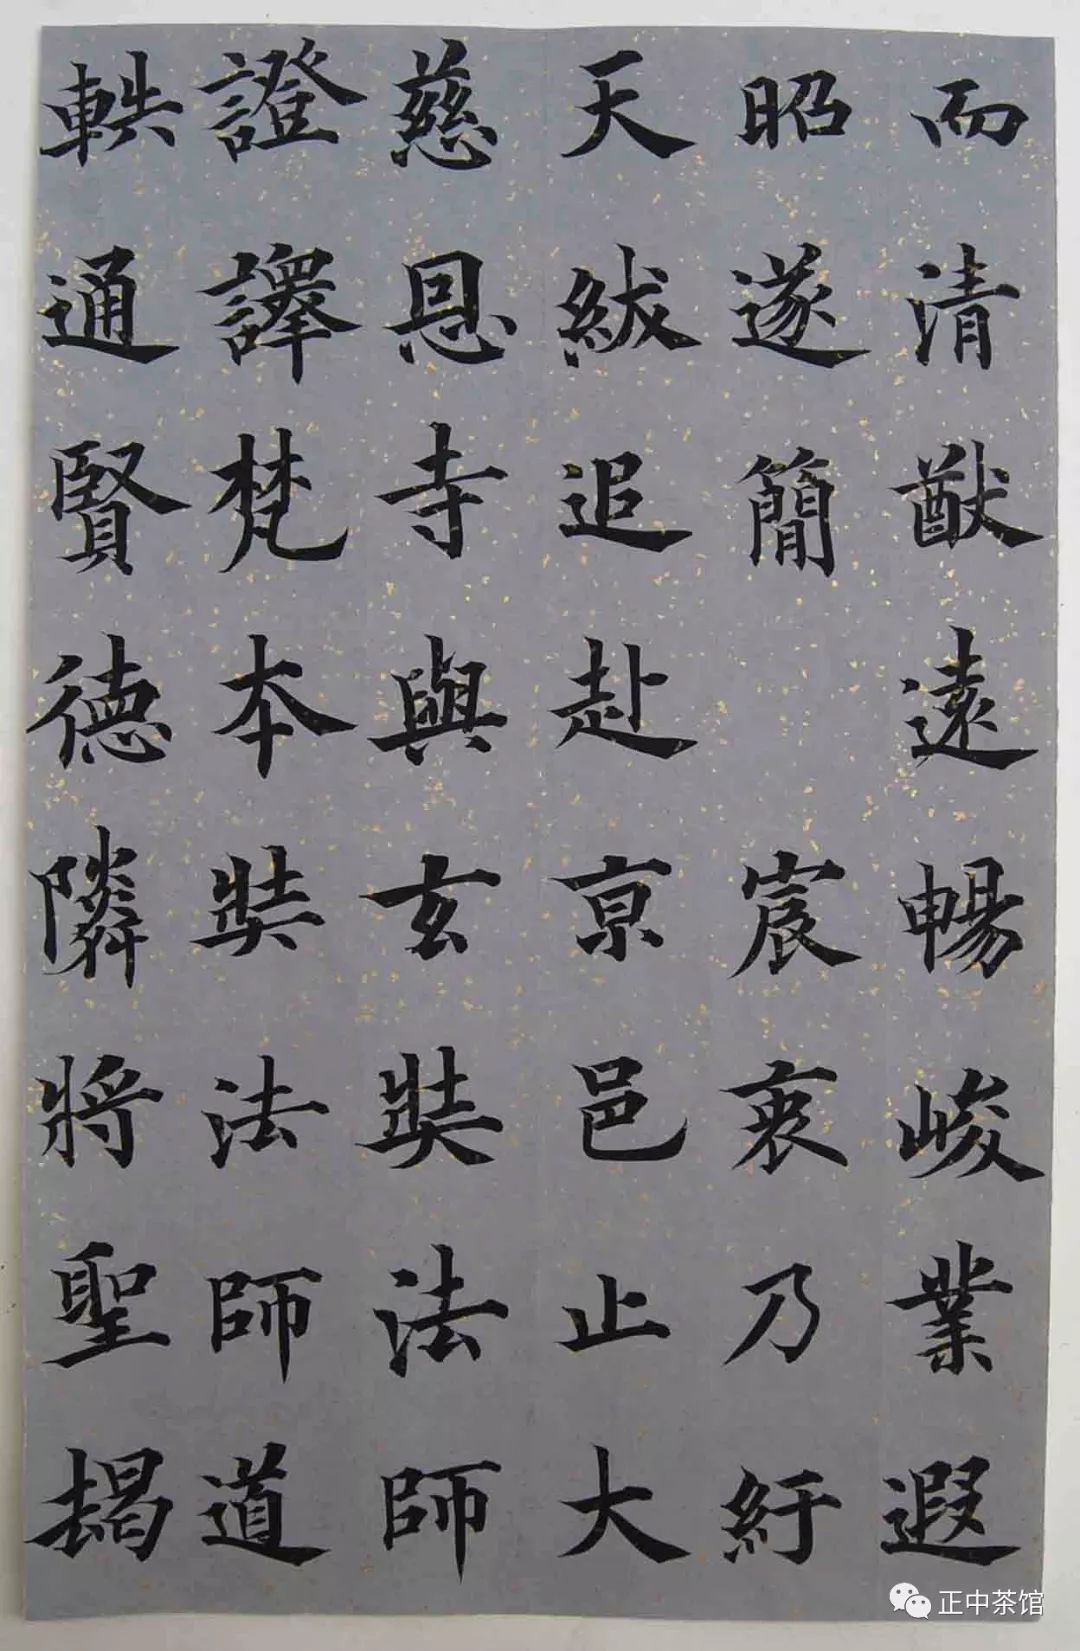 而清猷遠暢峻業遐
昭遂簡宸衷乃紆
天紱追赴京邑止大
慈恩寺與玄奘法師
證譯梵本奘法師道
軼通賢德隣將聖揭
正中茶馆